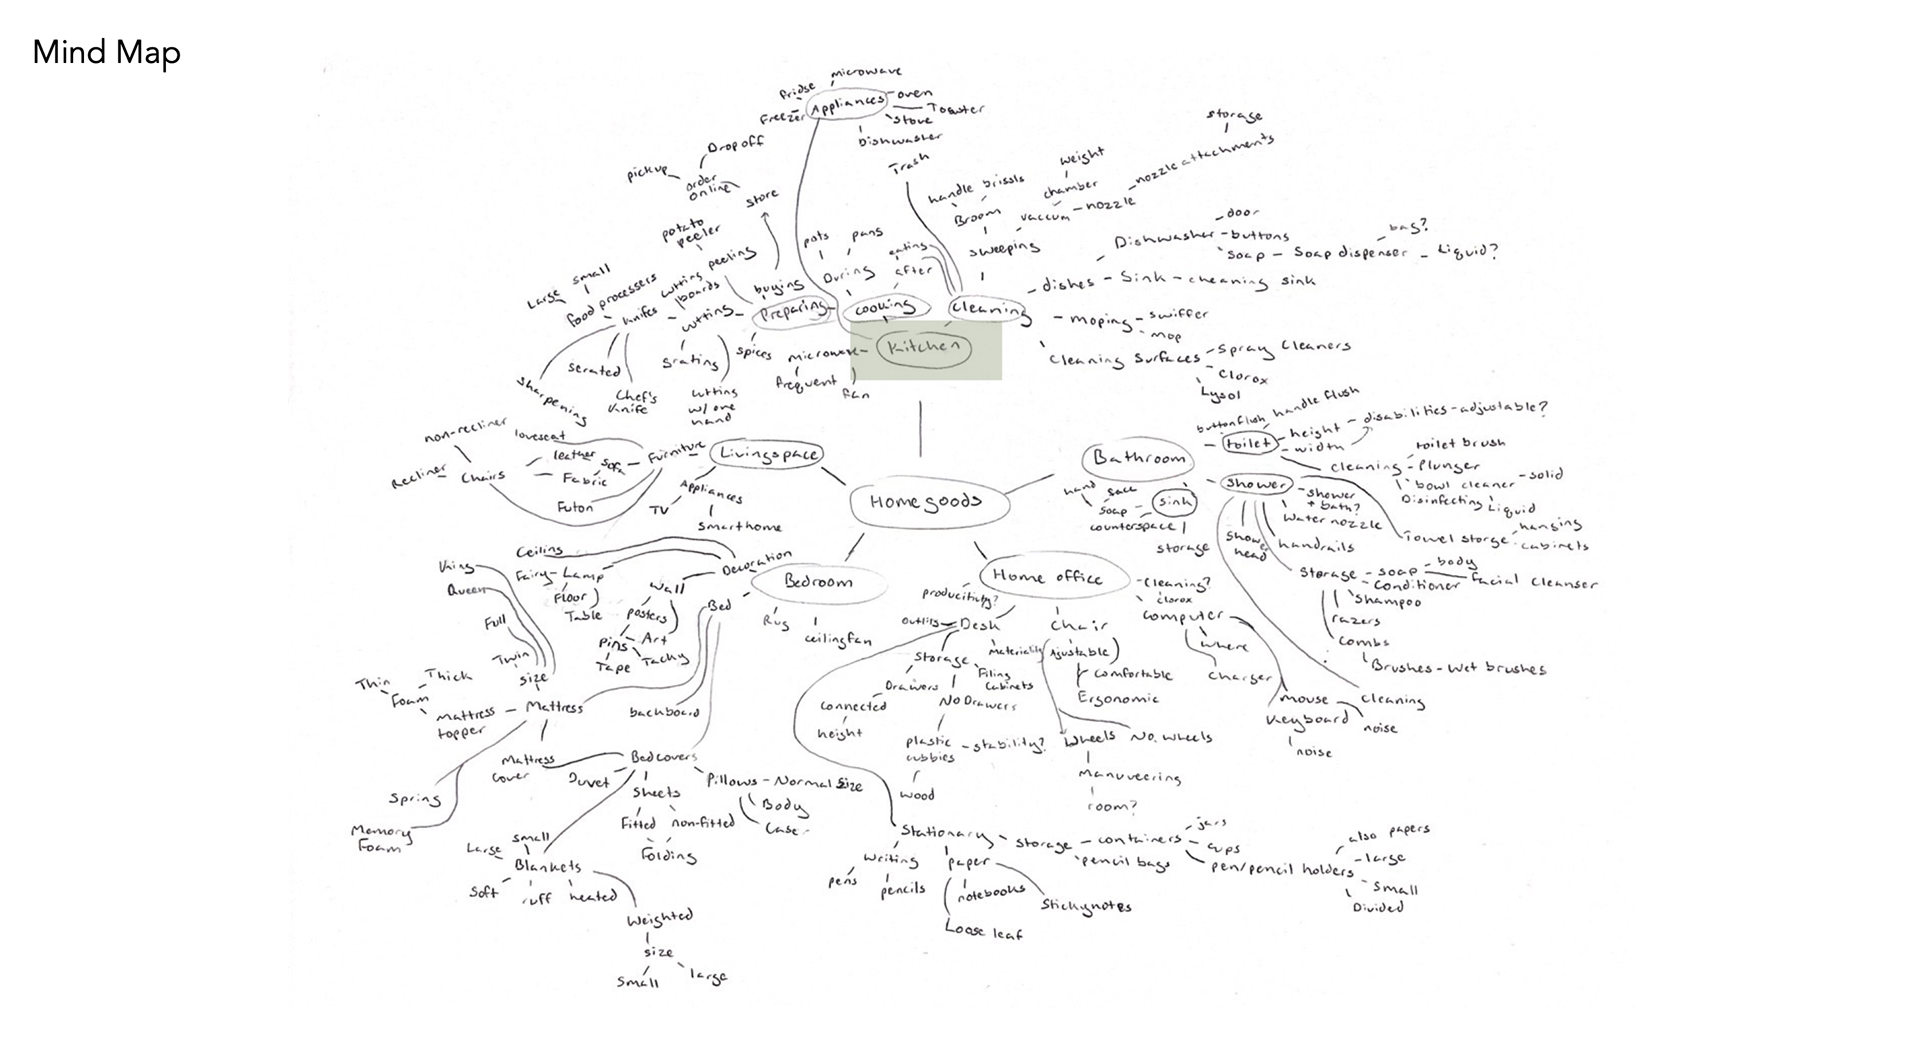 Mind Map
microwave
fridge
Appliances
oven
Freezer
Toaster
stove
Dishwasher
Trash
Dropoff
pickup
order
online
store
storage
weight
nozzle attachments
handle brissls
chamber
Broom
vaccum - nozzle
sweeping
potato
peeler
peeling
pots
pans
eating
During
after
door
Dishwasher - buttons
bag?
Soap - Soap dispenser - Liquid?
dishes - Sink - cheaning sink
Large
small
food processers
cutting
boards
buying
knifes
cutting
Preparing
cooking
cleaning
moping - swiffer
mop
Kitchen
spices
microwave
grating
frequent
fan
serated
sharpening
Chef's
knife
cutting
w/ one
hand
Cleaning Surfaces - Spray Cleaners
Clorox
Lysol
non-recliner
loveseat
leather
Furniture
Livingspace
Recliner
Chairs
Sofa
Fabric
Futon
Appliances
TV
Smarthome
Home goods
Bathroom
button flush
handle flush
toilet
height
disabilities - adjustable?
width
toilet brush
cleaning - Plunger
bowl cleaner - solid
Disinfecting
Liquid
hand
sink
soap
counterspace
storage
shower
shower
+ bath?
Water nozzle
hanging
Towel storge
cabinets
shower
head
handrails
Storage - soap - body
Facial cleanser
Conditioner
Shampoo
razers
combs
Brushes - Wet brushes
cleaning
Ceiling
Decoration
Bedroom
King
Fairy - Lamp
Queen
Floor
Table
Wall
posters
Bed
Rug
ceilingfan
Full
Pins
Art
Tape
Tacky
Twin
size
Thin
Thick
Foam
Mattress
topper
Mattress
backboard
Mattress
cover
Duvet
Bedcovers
Pillows - Normal Size
Body
Case
Sheets
Fitted
non-fitted
Folding
Spring
Memory
Foam
Large
small
Blankets
Soft
ruff
heated
Weighted
size
Small
large
Home office
cleaning?
clorox
producitivity?
outlits
Desk
Chair
Computer
where
charger
Storage
Materiality
Ajustable
Filing
Cabinets
Comfortable
Ergonomic
Drawers
No Drawers
connected
height
plastic
cubbies
stability?
wood
Wheels
No. Wheels
Manuveering
room?
mouse
Keyboard
noise
noise
Stationary - storage - containers - jars
cups
pencil bags
pen/pencil holders
also papers
large
Small
Divided
Writing
pens
pencils
paper
notebooks
Stickynotes
Loose leaf